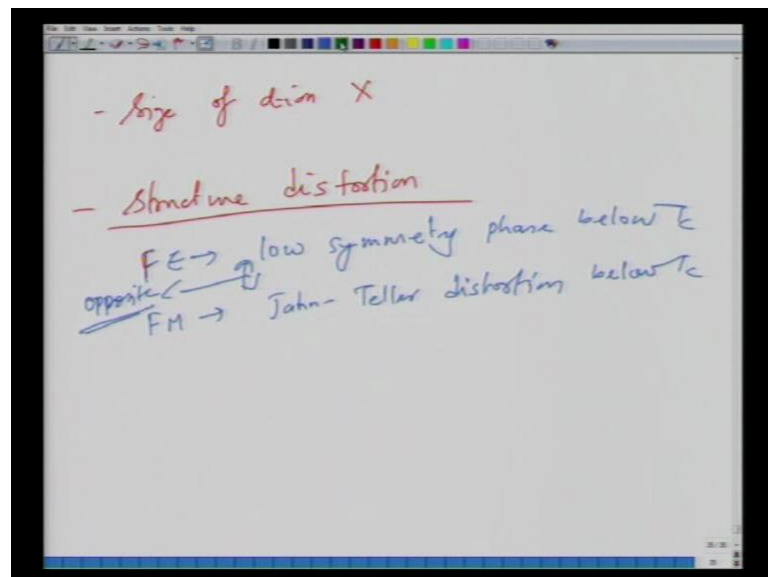 File Edit View Insert Actions Tools Help
- Size of d-ion X
- Structure distortion
FE → low symmetry phase below Tc
opposite
FM → Jahn-Teller distortion below Tc